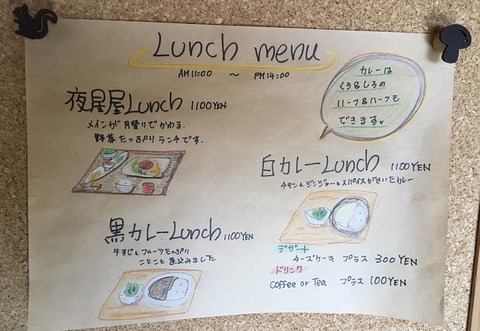 Lunch menu
AM 11:00 ～ PM 14:00
カレーは
くろ&しろの
ハーフ&ハーフも
できます。
夜尾屋Lunch 1100YEN
メインが月替りでかわる.
野菜たっぷりランチです.
白カレーLunch 1100YEN
チキンとジンジャー&スパイスがきいたカレー
黒カレーLunch 1100YEN
牛すじとフルーツたっぷり
ことこと煮込みました
デザート
チーズケーキ プラス 300YEN
ドリンク
coffee or Tea プラス 100YEN